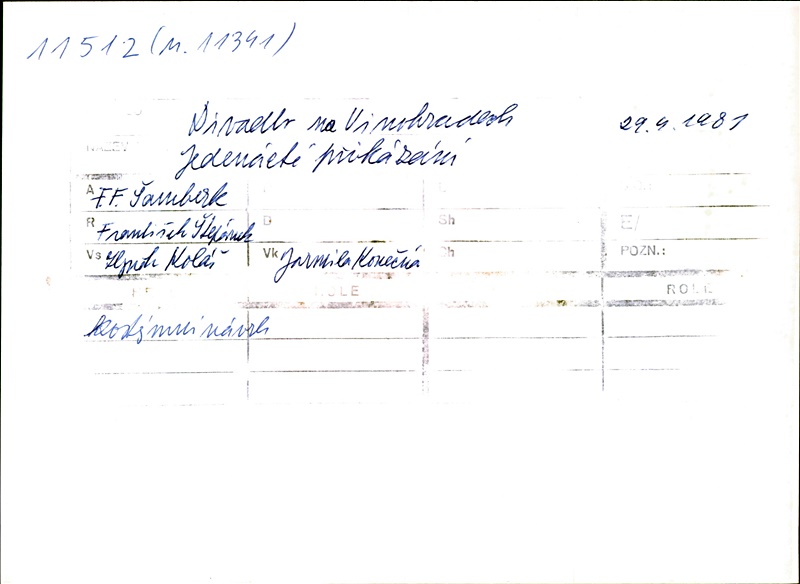 11512 (n. 11341)
Divadlo na Vinohradech 29.4.1981
NÁZEV Jedenácté přikázání
A F.F. Šamberk
R František Štěpánek D Sh E/
Vs Hynek Koláš Vk Jarmila Konečná Ch POZN.:
ROLE ROLE
kostýmní návrh